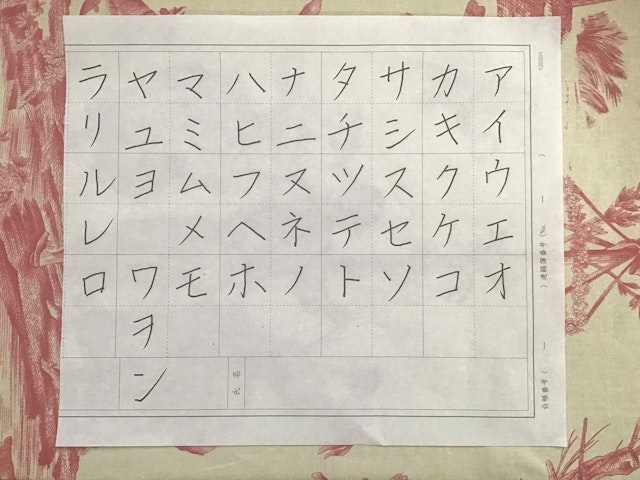 アイウエオ
カキクケコ
サシスセソ
タチツテト
ナニヌネノ
ハヒフヘホ
マミムメモ
ヤユヨ
ワヲン
ラリルレロ
氏名
台帳番号(　ー　)連絡簿番号(No.　ー　)